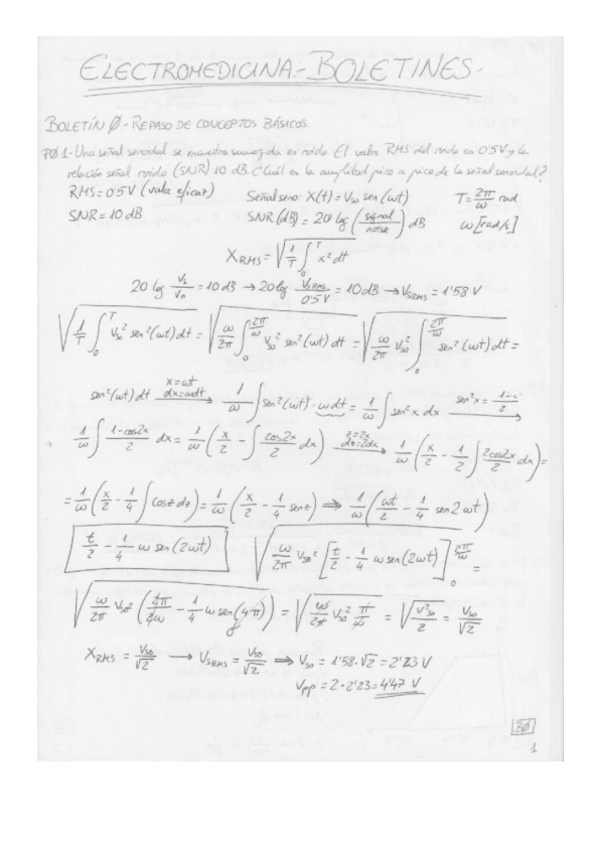 ELECTROMEDICINA.- BOLETINES.-
BOLETÍN Ø - REPASO DE CONCEPTOS BÁSICOS
PØ1.- Una señal senoidal se encuentra sumergida en ruido. El valor RMS del ruido es 0'5V y la
relación señal ruido (SNR) 10 dB. ¿Cuál es la amplitud pico a pico de la señal senoidal?
RMS = 0'5 V (valor eficaz) Señal seno: X(t) = Vso sen(ωt) T = 2π/ω rad
SNR = 10 dB SNR(dB) = 20 log (signal/noise) dB ω [rad/s]
XRMS = √(1/T ∫₀ᵀ x² dt)
20 log Vs/Vn = 10 dB → 20 log VsRMS/0'5V = 10 dB → VsRMS = 1'58 V
√(1/T ∫₀ᵀ Vso² sen²(ωt) dt) = √(ω/2π ∫₀^(2π/ω) Vso² sen²(ωt) dt) = √(ω/2π Vso² ∫₀^(2π/ω) sen²(ωt) dt) =
sen²(ωt) dt x=ωt dx=ωdt → 1/ω ∫ sen²(ωt)·ωdt = 1/ω ∫ sen²x dx sen²x = →
1/ω ∫ (1-cos2x)/2 dx = 1/ω (x/2 - ∫ cos2x/2 dx) z=2x dz=2dx → 1/ω (x/2 - 1/2 ∫ 2cos2x/2 dx) =
= 1/ω (x/2 - 1/4 ∫ cosz dz) = 1/ω (x/2 - 1/4 senz) ⇒ 1/ω (ωt/2 - 1/4 sen2ωt)
t/2 - 1/4 ω sen(2ωt) √(ω/2π Vso² [t/2 - 1/4 ω sen(2ωt)]₀^(2π/ω)) =
√(ω/2π Vso² (2π/2ω - 1/4 ω sen(4π))) = √(ω/2π Vso² π/ω) = √(V²so/2) = Vso/√2
XRMS = Vso/√2 → VsRMS = Vso/√2 ⇒ Vso = 1'58·√2 = 2'23 V
Vpp = 2·2'23 = 4'47 V
BØ
1